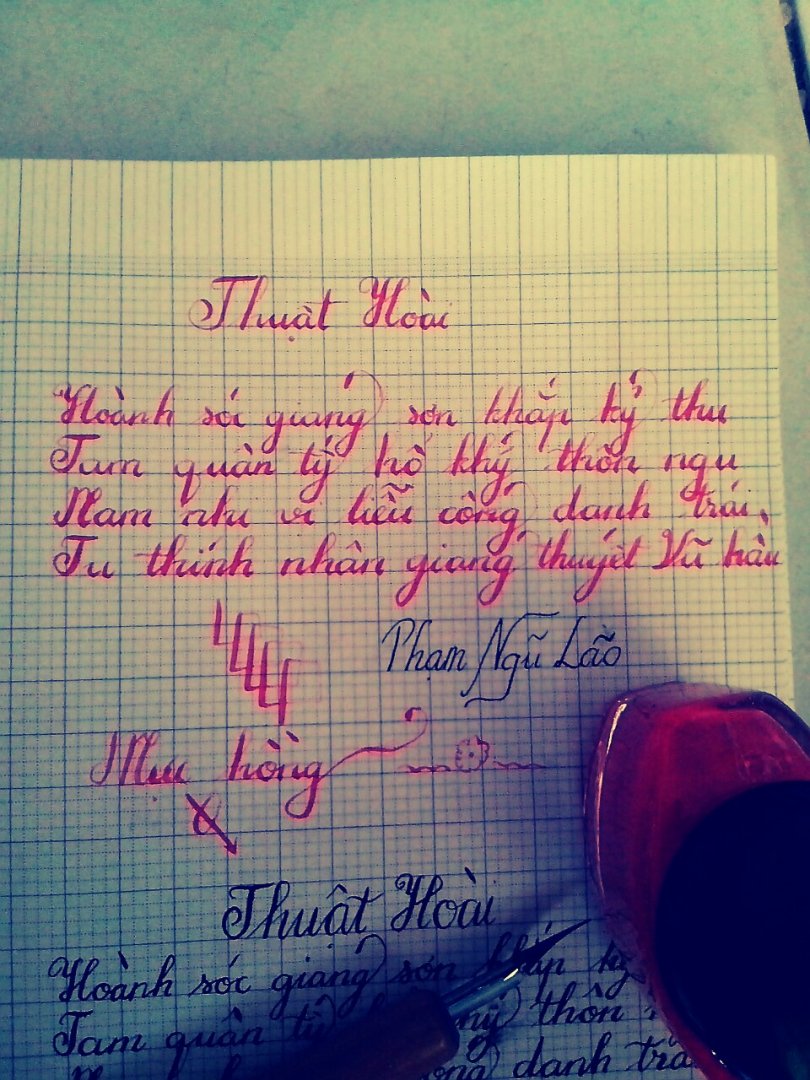 Thuật Hoài
Hoành sóc giang sơn kháp kỷ thu
Tam quân tỳ hổ khý thôn ngưu
Nam nhi vị liễu công danh trái
Tu thính nhân gian thuyết Vũ hầu
Phạm Ngũ Lão
Mực hồng
Thuật Hoài
Hoành sóc giang sơn kháp kỷ
Tam quân tỳ thôn
danh trái